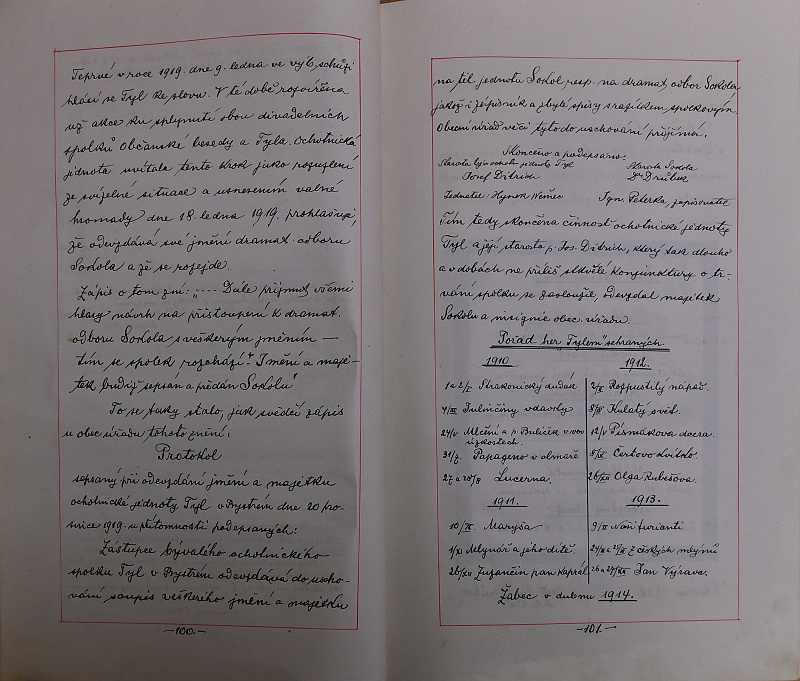 Teprvé v roce 1919. dne 9. ledna ve výb. schůzi
hlásí se Tyl ke slovu. V té době rozvířena
už akce ku splynutí obou divadelních
spolků Občanské besedy a Tyla. Ochotnická
jednota uvítala tento krok jako rozuzlení
ze svízelné situace a usnesením valné
hromady dne 18. ledna 1919. prohlašuje,
že odevzdává své jmění dramat. odboru
Sokola a že se rozejde.
Zápis o tom zní: „---- Dále přijmut všemi
hlasy návrh na přistoupení k dramat.
odboru Sokola s veškerým jměním —
tím se spolek rozchází! Jmění a maje-
tek budiž sepsán a předán Sokolu"
To se taky stalo, jak svědčí zápis
u obec. úřadu tohoto znění:
Protokol
sepsaný při odevzdání jmění a majetku
ochotnické jednoty Tyl v Bystrém dne 20 pro-
since 1919. u přítomnosti podepsaných:
Zástupce bývalého ochotnického
spolku Tyl v Bystrém odevzdává do uscho-
vání soupis veškerého jmění a majetku
—100.—
na těl. jednotu Sokol resp. na dramat. odbor Sokola
jakož i zápisník a zbylé spisy s razítkem spolkovým.
Obecní úřad věci tyto do uschování přijímá.
Skončeno a podepsáno.
Starosta býv. ochot. jednoty Tyl Starosta Sokola
Josef Ditrich Dr Drůbek
Jednatel: Hynek Němec Ign. Peterka, zapisovatel
Tím tedy skončena činnost ochotnické jednoty
Tyl a její starosta p. Jos. Ditrich, který tak dlouho
a v dobách ne příliš skvělé konjunktury o tr-
vání spolku se zasloužil, odevzdal majetek
Sokolu a insignie obec. úřadu.
Pořad her „Tylem" sehraných.
1910
1 a 2/ Strakonický dudák
4/III Julinčiny vdavky
24/V Mlčení a p. Bulíček v
úzkostech.
31/7. Papageno v almaře
27 a 28/8 Lucerna.
1911.
10/ Maryša
1/XI Mlynář a jeho dítě.
26/XII Zuzančin pan kaprál
1912.
2/II Rozpustilý nápad.
8/IV Kulatý svět.
12/V Písmákova dcera.
8/ Čertovo kvítko.
26/XII Olga Rubešova.
1913.
9/II Naši furianti
Z českých mlýnů
26 a 27/XII Jan Výrava.
Žabec v dubnu 1914.
—101.—